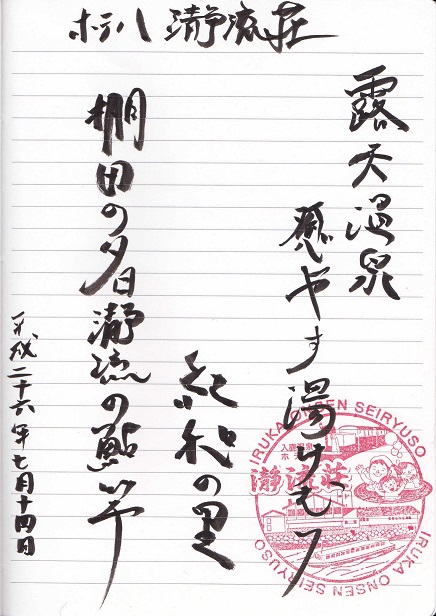 ホテル 瀞流荘
露天温泉
癒やす湯けむり
紀和の里
棚田の夕日瀞流の鮎竿
平成二十六年七月十四日
IRUKA ONSEN SEIRYUSO
入鹿温泉
ホ
瀞流荘
IRUKA ONSEN SEIRYUSO